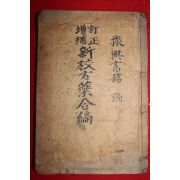 振興書籍 編
訂正
增補
新校方藥合編